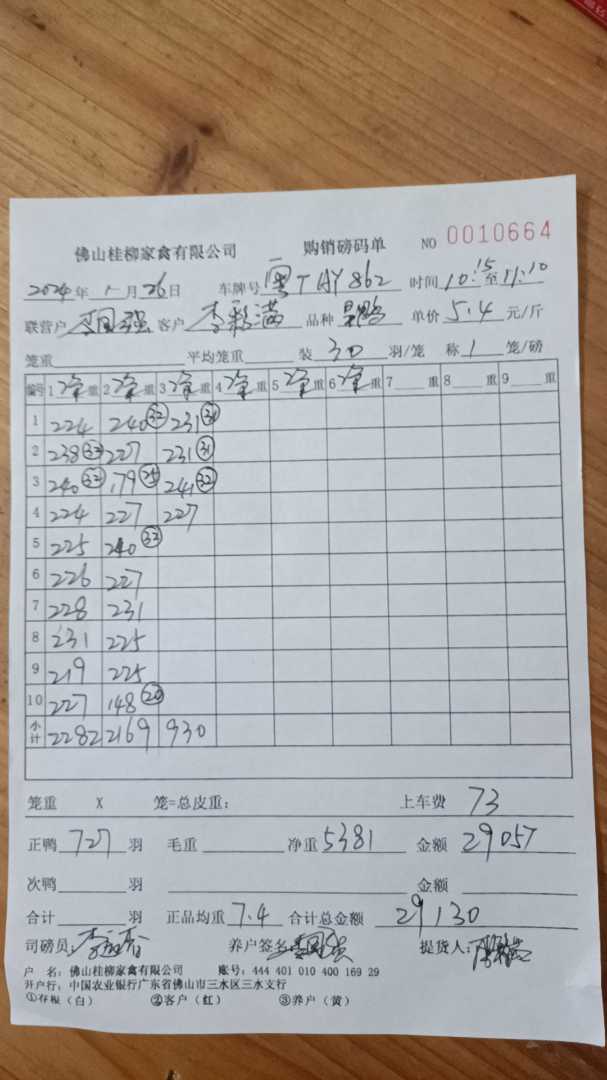 佛山桂柳家禽有限公司 购销磅码单 NO 0010664
2024年1月26日 车牌号 粤TAY862 时间 10:15至11:10
联营户 强 客户 李彩满 品种 单价 5.4 元/斤
笼重 平均笼重 装 30 羽/笼 称 1 笼/磅
编号 1 净重 2 净重 3 净重 4 净重 5 净重 6 净重 7 重 8 重 9 重
1 224 240 32 231 31
2 238 227 231 31
3 240 32 179 241 32
4 224 227 227
5 225 240
6 226 227
7 228 231
8 231 225
9 219 225
10 227 148 20
小计 2282 2169 930
笼重 X 笼=总皮重: 上车费 73
正鸭 727 羽 毛重 净重 5381 金额 29057
次鸭 羽 金额
合计 羽 正品均重 7.4 合计总金额 29130
司磅员: 养户签名 提货人:
户 名: 佛山桂柳家禽有限公司 账号: 444 401 010 400 169 29
开户行: 中国农业银行广东省佛山市三水区三水支行
①存根(白) ②客户(红) ③养户(黄)